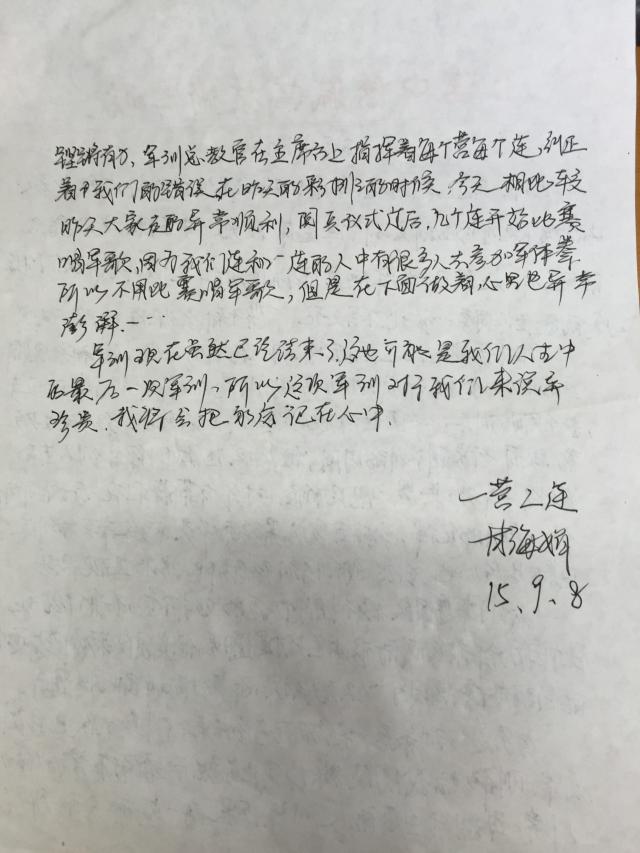 铿锵有力，军训总教官在主席台上指挥着每个营每个连，纠正
着我们的错误在昨天的彩排的时候，今天相比较
昨天大家走的异常顺利，阅兵仪式过后，几个连开始比赛
唱军歌，因为我们连和一连的人中有很多人去参加军体拳
所以不用比赛唱军歌，但是在下面做着，心里也异常
澎湃.……
军训现在虽然已经结束了，这也可能是我们人生中
最后一次军训，所以这次军训对于我们来说
珍贵，我将会把 记在心中.
一营二连
海
15、9、8